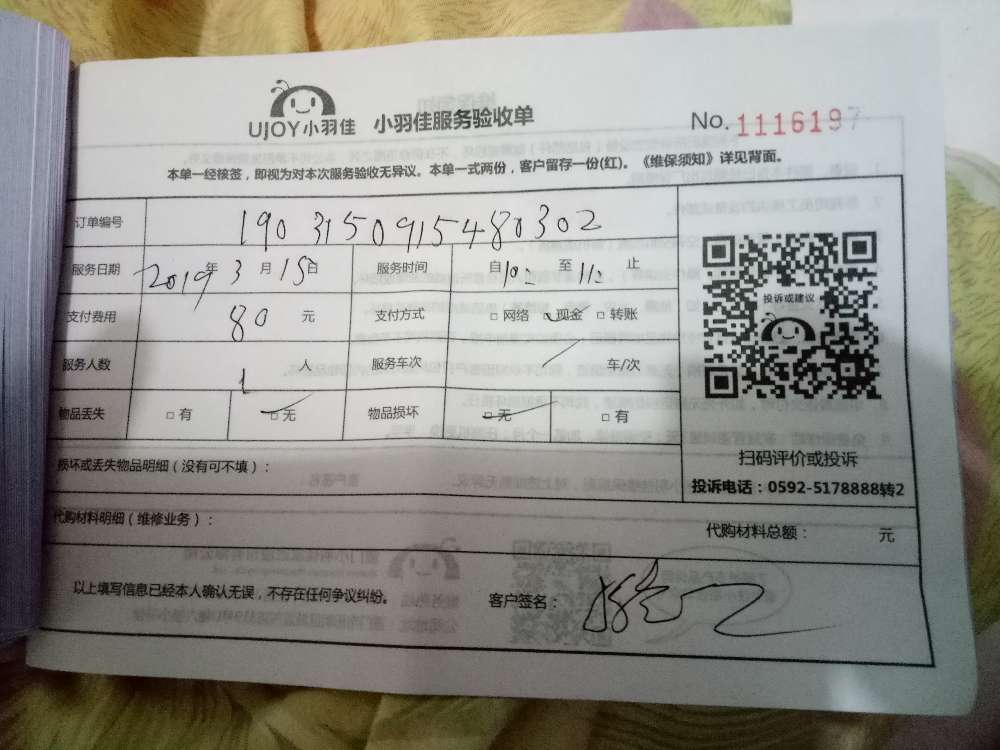 UJOY小羽佳 小羽佳服务验收单 No. 1116197
本单一经核签，即视为对本次服务验收无异议。本单一式两份，客户留存一份(红)。《维保须知》详见背面。
订单编号 1903150915480302
服务日期 2019年3月15日 服务时间 自10: 至11: 止
支付费用 80 元 支付方式 □网络 ✓现金 □转账
服务人数 1 人 服务车次 / 车/次
物品丢失 □有 ✓无 物品损坏 ✓无 □有
投诉或建议
扫码评价或投诉
投诉电话：0592-5178888转2
损坏或丢失物品明细（没有可不填）：
代购材料明细（维修业务）： 代购材料总额： 元
以上填写信息已经本人确认无误，不存在任何争议纠纷。 客户签名：